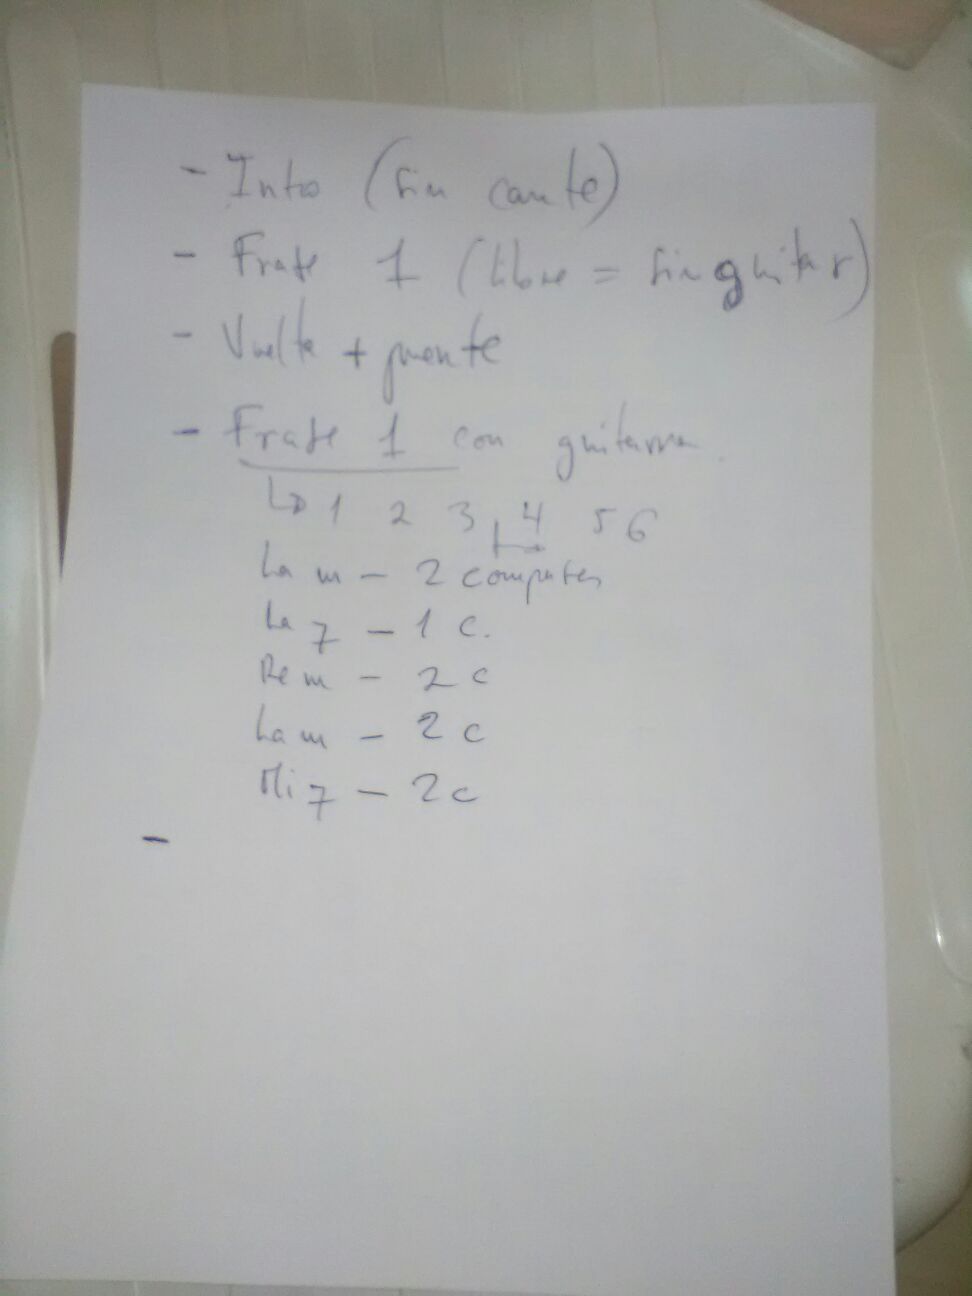 - Intro (sin cante)
- Frase 1 (libre = sin guitar)
- Vuelta + puente
- Frase 1 con guitarra.
↳ 1 2 3 4 5 6
La m - 2 compases
La 7 - 1 c.
Re m - 2 c
La m - 2 c
Mi 7 - 2 c
-